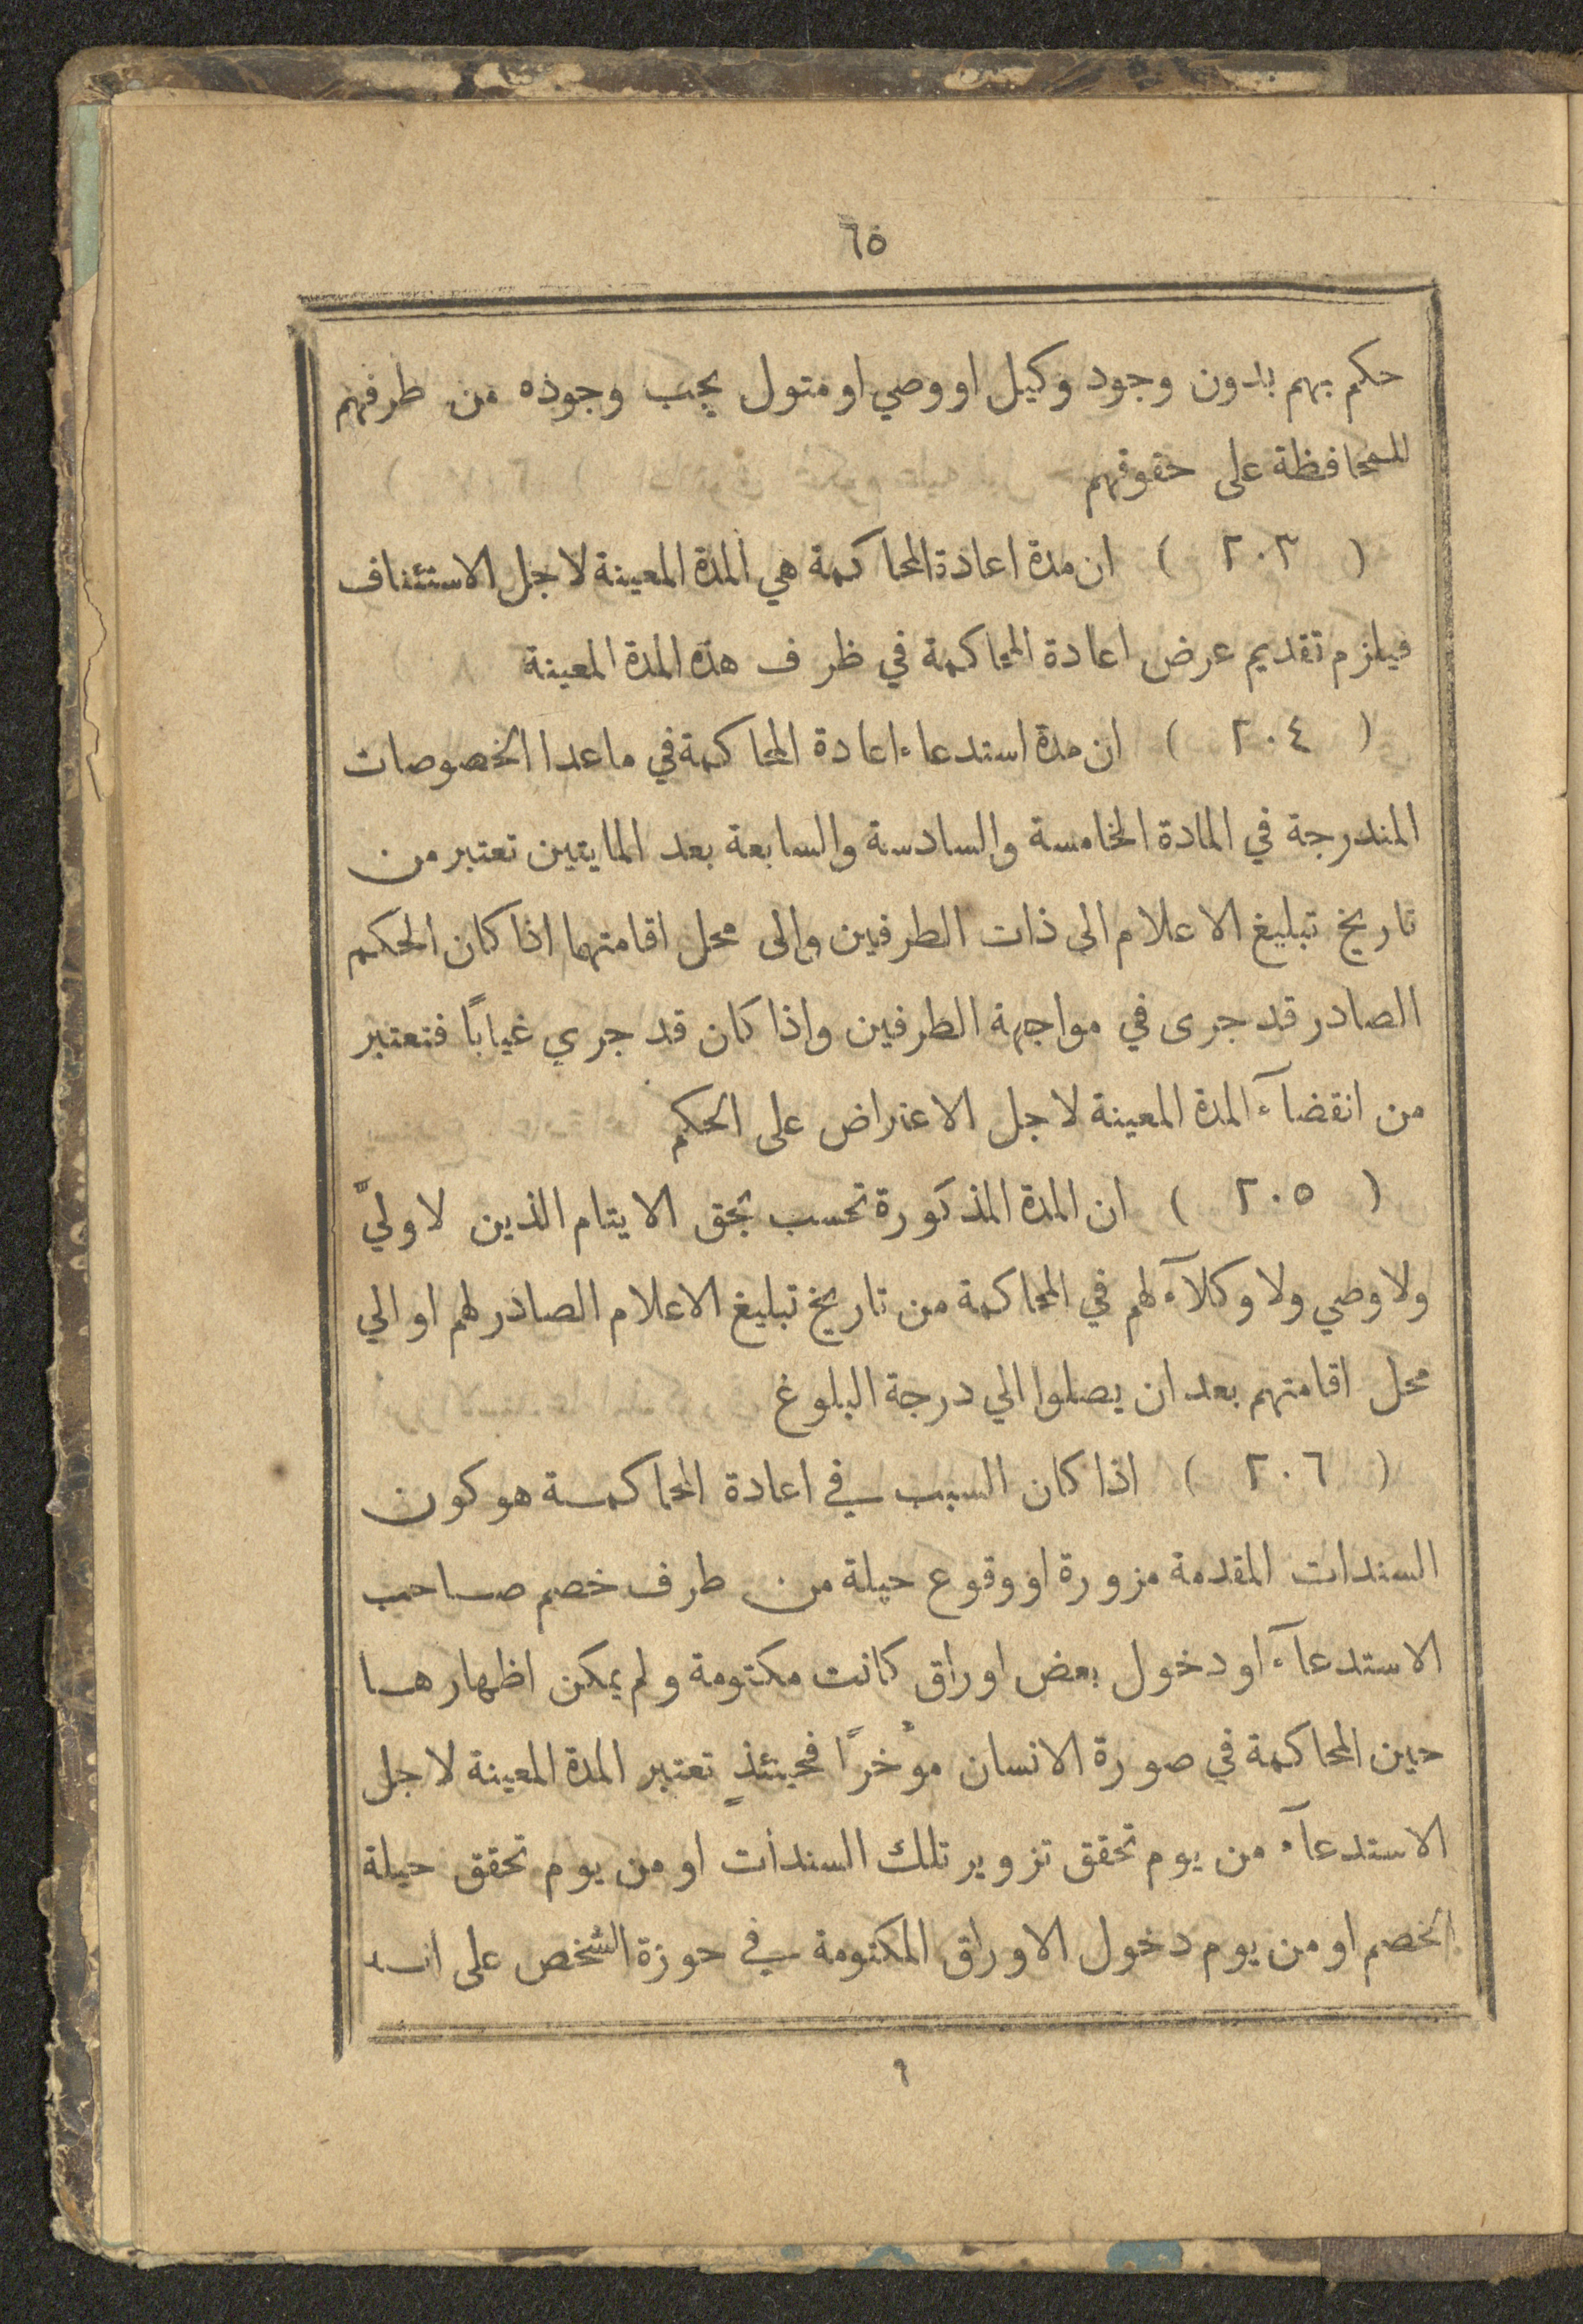 ٦٥
حكم بهم بدون وجود وكيل او وصي او متول يجب وجوده من طرفهم
للمحافظة على حقوقهم
( ٢٠٣ ) ان مدة اعادة المحاكمة هي المدة المعينة لاجل الاستئناف
فيلزم تقديم عرض اعادة المحاكمة في ظرف هذه المدة المعينة
( ٢٠٤ ) ان مدة استدعاء اعادة المحاكمة في ماعدا الخصوصات
المندرجة في المادة الخامسة والسادسة والسابعة بعد المايتين تعتبر من
تاريخ تبليغ الاعلام الى ذات الطرفين والى محل اقامتهما اذا كان الحكم
الصادر قد جرى في مواجهة الطرفين واذا كان قد جري غيابًا فتعتبر
من انقضآء المدة المعينة لاجل الاعتراض على الحكم
( ٢٠٥ ) ان المدة المذكورة تحسب بحق الايتام الذين لا وليّ
ولا وصي ولا وكلآء لهم في المحاكمة من تاريخ تبليغ الاعلام الصادر لهم او الي
محل اقامتهم بعد ان يصلوا الي درجة البلوغ
( ٢٠٦ ) اذا كان السبب في اعادة المحاكمة هو كون
السندات المقدمة مزورة او وقوع حيلة من طرف خصم صاحب
الاستدعآء او دخول بعض اوراق كانت مكتومة ولم يمكن اظهارها
حين المحاكمة في صورة الانسان مؤخرًا فحينئذٍ تعتبر المدة المعينة لاجل
الاستدعآء من يوم تحقق تزوير تلك السندات او من يوم تحقق حيلة
الخصم او من يوم دخول الاوراق المكتومة في حوزة الشخص على انه
٩